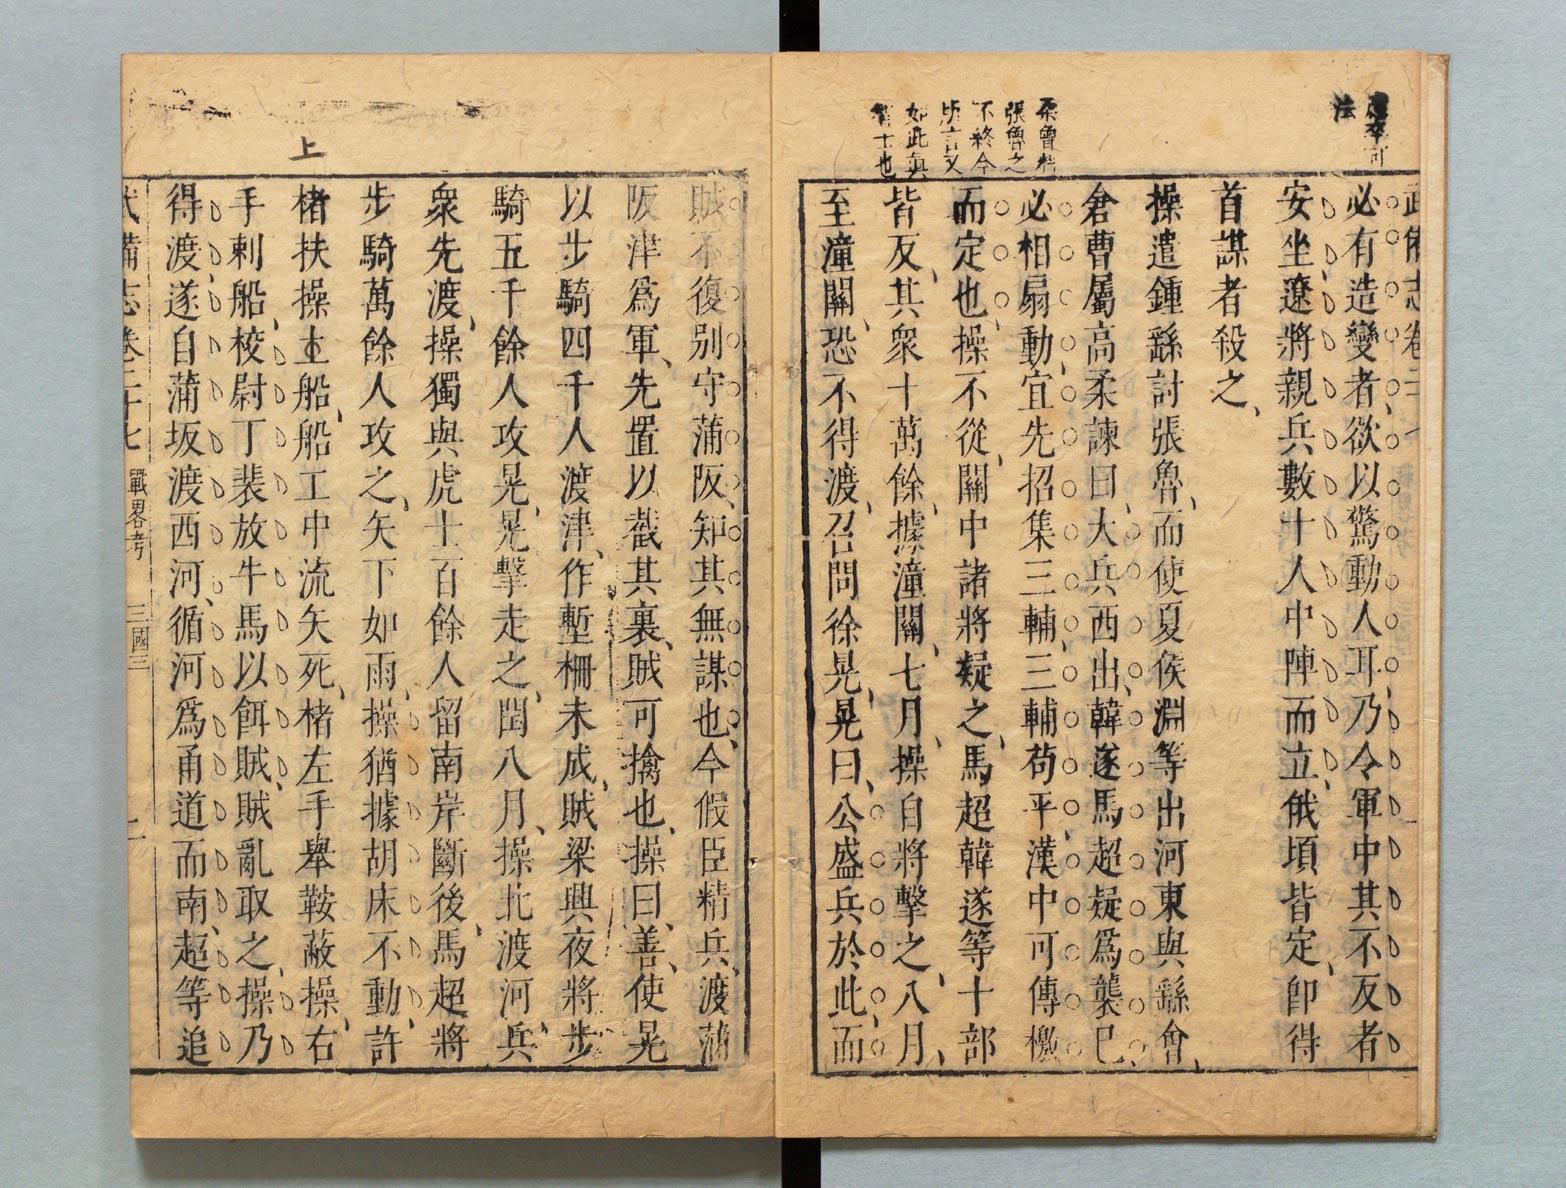 應卒可
法
必有造變者欲以驚動人耳乃令軍中其不反者
安坐遼將親兵數十人中陣而立俄頃皆定卽得
首謀者殺之
操遣鍾繇討張魯而使夏侯淵等出河東與繇會
倉曹屬高柔諫曰大兵西出韓遂馬超疑爲襲已
必相扇動宜先招集三輔三輔苟平漢中可傳檄
而定也操不從關中諸將疑之馬超韓遂等十部
皆反其衆十萬餘據潼關七月操自將擊之八月
至潼關恐不得渡召問徐晃晃曰公盛兵於此而
張魯之
不終今
所言又
如此真
智士也
賊不復别守蒲阪知其無謀也今假臣精兵渡蒲
阪津爲軍先置以截其裏賊可擒也操曰善使晃
以步騎四千人渡津作塹柵未成賊梁興夜將步
騎五千餘人攻晃晃擊走之閏八月操北渡河兵
衆先渡操獨與虎士百餘人留南岸斷後馬超將
步騎萬餘人攻之矢下如雨操猶據胡床不動許
楮扶操上船船工中流矢死楮左手舉鞍蔽操右
手刺船校尉丁裴放牛馬以餌賊賊亂取之操乃
得渡遂自蒲坂渡西河循河爲甬道而南超等追
上
武備志卷二十七 戰畧考 三國三